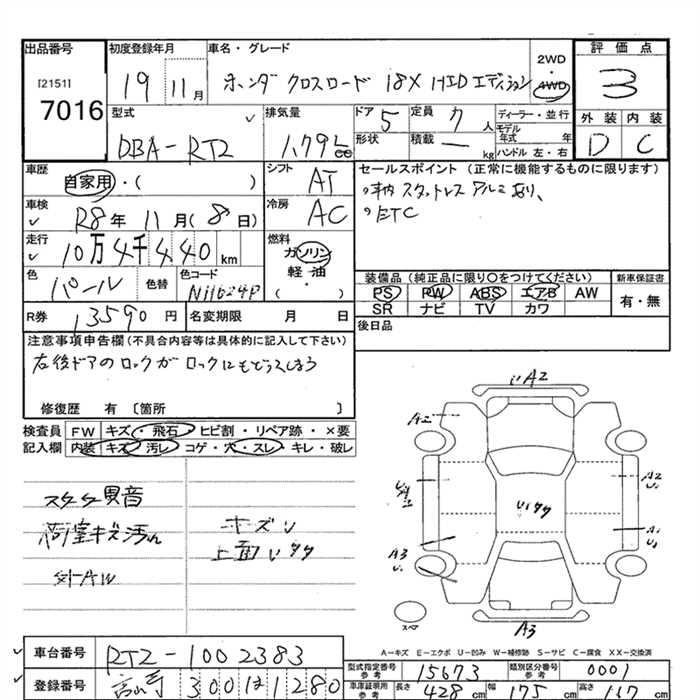 出品番号
[2151]
7016
初度登録年月
19 11月
車名・グレード
ホンダ クロスロード 18X HIDエディション
2WD
4WD
評価点
3
外装 内装
D C
型式
DBA-RT2
排気量
1.79L
ドア 5
定員 7人
形状
積載 ー kg
ディーラー・並行
モデル年式 年
ハンドル 左・右
車歴
自家用・( )
シフト AT
車検
R8年 11月(8日)
冷房 AC
走行
10万4千440km
燃料
ガソリン
軽・油
( )
色
パール
色替
色コード
NH624P
R券 13590円
名変期限 月 日
セールスポイント(正常に機能するものに限ります)
スタットレスアルミあり、
ETC
装備品(純正品に限り○をつけてください)
PS PW ABS エアB AW
SR ナビ TV カワ
新車保証書
有・無
後日品
注意事項申告欄(不具合内容等は具体的に記入して下さい)
右後ドアのロックがロックにもどってしまう
修復歴 有〔箇所 〕
検査員記入欄
FW キズ・飛石・ヒビ割・リペア跡・×要
内装 キズ・汚レ・コゲ・穴・スレ・キレ・破レ
スタータ異音
荷室キズ汚れ
社外AW
キズU
上面Uタタ
A2
A2
U
A2
U
A1
U
A3
U
スペア
A3
A-キズ E-エクボ U-凹み W-補修跡 S-サビ C-腐食 XX-交換済
車台番号 RT2-1002383
登録番号 300 1280
型式指定番号 参考 15673
類別区分番号 参考 0001
車庫証明用 参考
長さ 428cm
幅 175cm
高さ